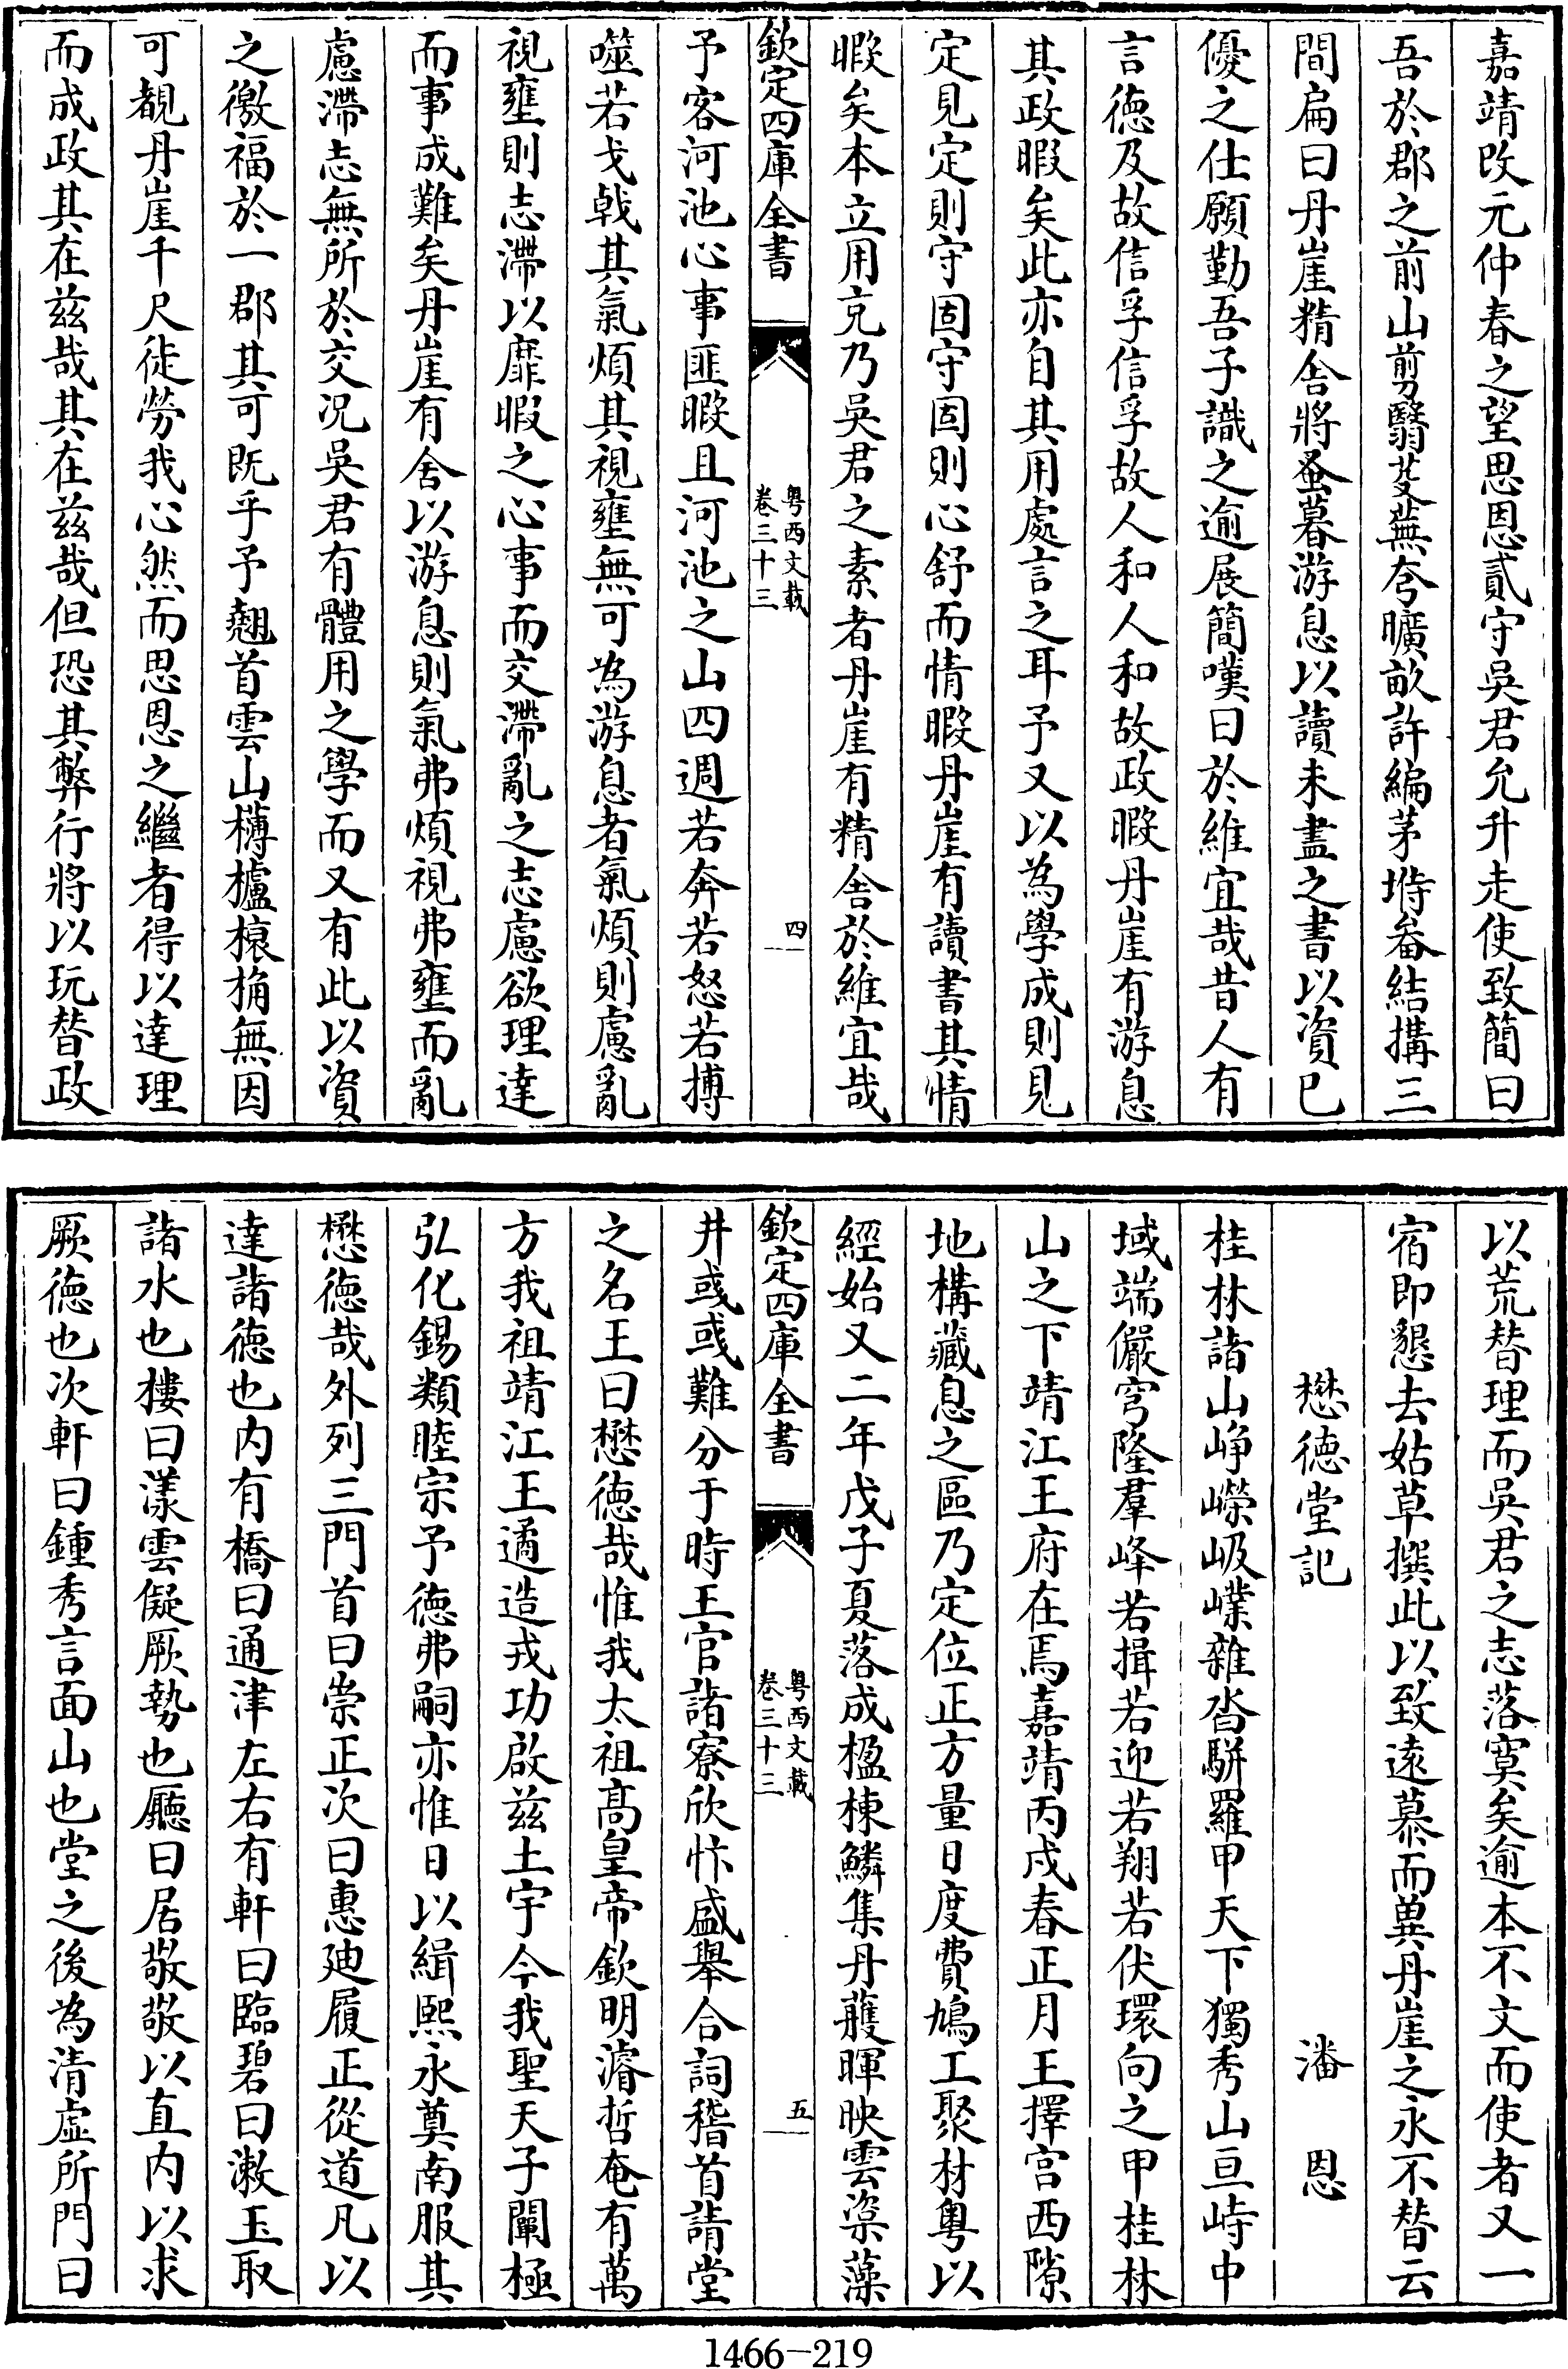 嘉靖改元仲春之望思恩貳守吳君允升走使致簡曰
吾於郡之前山剪翳芟蕪夸曠畝許編茅塒畚結搆三
間扁曰丹崖精舎將蚤暮游息以讀未盡之書以資已
優之仕願勤吾子識之逾展簡嘆曰於維宜哉昔人有
言徳及故信孚信孚故人和人和故政暇丹崖有游息
其政暇矣此亦自其用處言之耳予又以為學成則見
定見定則守固守固則心舒而情暇丹崖有讀書其情
暇矣本立用克乃吳君之素者丹崖有精舎於維宜哉
欽定四庫全書
粤西文載
卷三十三
四
予客河池心事匪暇且河池之山四週若奔若怒若搏
噬若戈戟其氣煩其視壅無可為游息者氣煩則慮亂
視壅則志滯以靡暇之心事而交滯亂之志慮欲理達
而事成難矣丹崖有舎以游息則氣弗煩視弗壅而亂
慮滯志無所於交况吳君有體用之學而又有此以資
之徼福於一郡其可既乎予翹首雲山欂櫨榱桷無因
可覩丹崖千尺徒勞我心然而思恩之繼者得以達理
而成政其在兹哉其在兹哉但恐其弊行將以玩替政
以荒替理而吳君之志落寞矣逾本不文而使者又一
宿即懇去姑草撰此以致逺慕而兾丹崖之永不替云
懋徳堂記 潘恩
桂林諸山崢嶸岋嶫雜沓駢羅甲天下獨秀山亘峙中
域端儼穹隆羣峰若揖若迎若翔若伏環向之甲桂林
山之下靖江王府在焉嘉靖丙戌春正月王擇宫西隙
地構藏息之區乃定位正方量日度費鳩工聚材粤以
經始又二年戊子夏落成楹棟鱗集丹雘暉映雲楶藻
欽定四庫全書
粤西文載
卷三十三
五
井彧彧難分于時王官諸寮欣忭盛舉合詞稽首請堂
之名王曰懋徳哉惟我太祖髙皇帝欽明濬哲奄有萬
方我祖靖江王遹造戎功啟兹土宇今我聖天子闡極
弘化錫類睦宗予徳弗嗣亦惟日以緝熙永奠南服其
懋徳哉外列三門首曰崇正次曰惠廸履正從道凡以
達諸徳也内有橋曰通津左右有軒曰臨碧曰漱玉取
諸水也樓曰漾雲儗厥勢也廳曰居敬敬以直内以求
厥徳也次軒曰鍾秀言面山也堂之後為清虚所門曰
1466-219